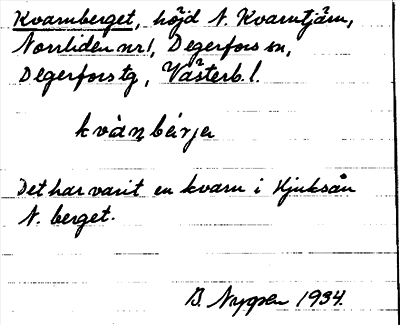 Kvarnberget, höjd N. Kvarntjärn,
Norrliden nr 1, Degerfors sn,
Degerfors tg, Västerb. l.
kvà̀ṇbærjə
Det har varit en kvarn i Hjuksån
N. berget.
B. Nygren 1934.